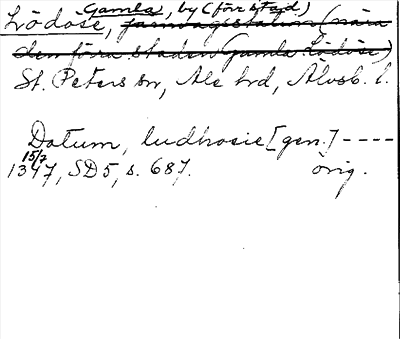 Gamla, by (för stad)
Lödöse, järnvägsstation (nära
den förra staden Gamla Lödöse)
St. Peters sn, Ale hd, Älvsb. l.
Datum, ludhosie [gen.] ----
15/7
1347, SD 5, s. 687. orig.